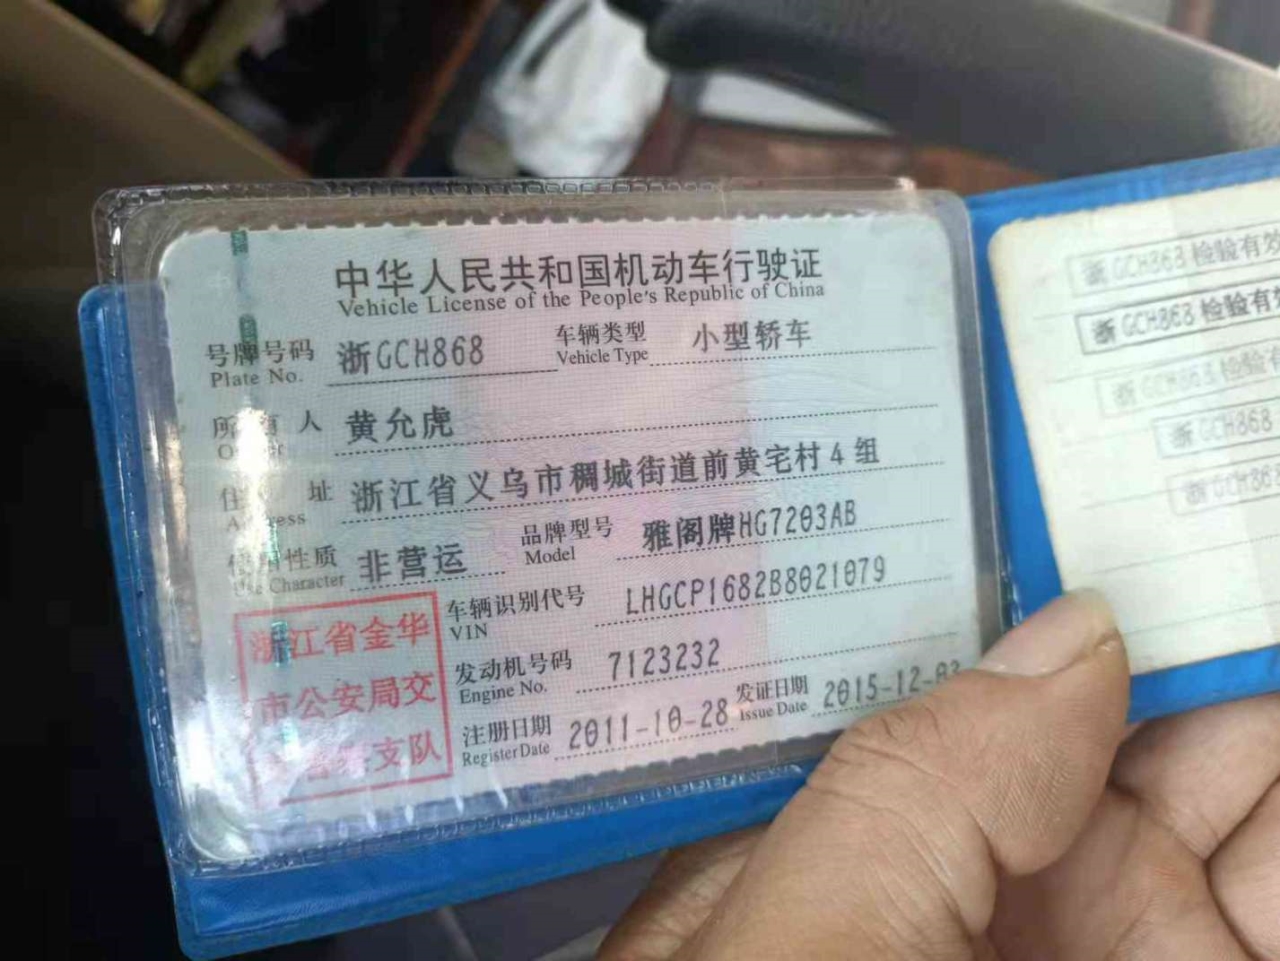 中华人民共和国机动车行驶证
Vehicle License of the People's Republic of China
号牌号码 浙GCH868 车辆类型 小型轿车
Plate No. Vehicle Type
所有人 黄允虎
Owner
住址 浙江省义乌市稠城街道前黄宅村4组
Address
使用性质 非营运 品牌型号 雅阁牌HG7203AB
Use Character Model
浙江省金华
市公安局交
支队
车辆识别代号 LHGCP1682B8021079
VIN
发动机号码 7123232
Engine No.
注册日期 2011-10-28 发证日期 2015-12-03
Register Date Issue Date
浙GCH868检验有效
浙GCH868检验有
浙GCH868检验有
浙GCH868
浙GCH868